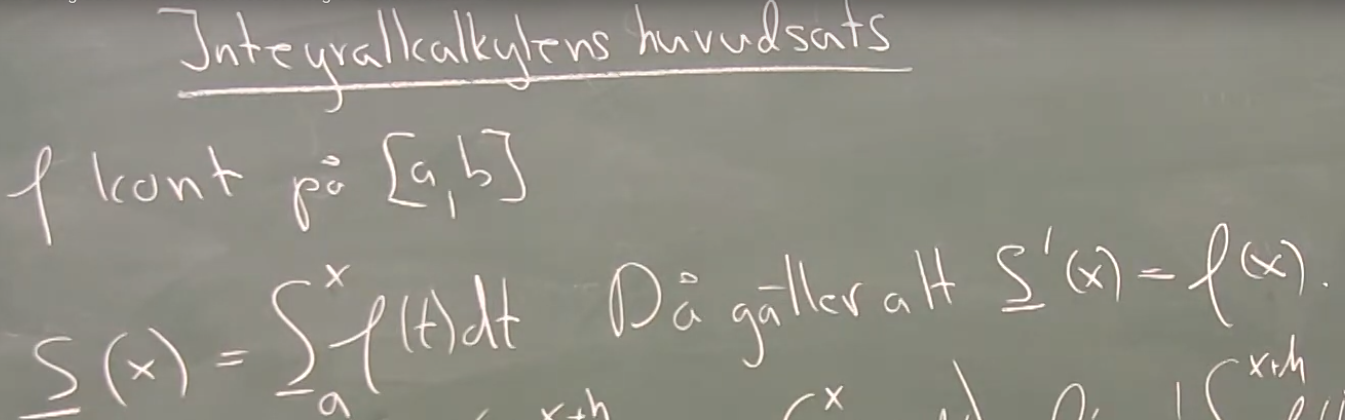 Integralkalkylens huvudsats
f kont på [a,b]
S(x) = ∫_a^x f(t)dt Då gäller att S'(x) = f(x).
x+h x x+h